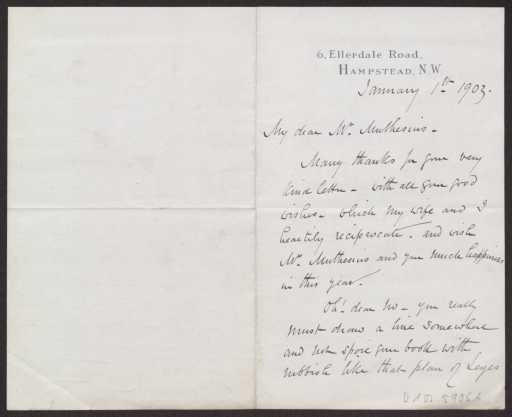 6, Ellerdale Road,
Hampstead, N.W.
January 1st 1903.
My dear Mr. Muthesius –
Many thanks for your very
kind letter – with all your good
wishes – which my wife and I
heartily reciprocate – and wish
Mrs. Muthesius and you much happiness
in this year.
Oh! dear no – you really
must draw a line somewhere
and not spoil your book with
rubbish like that plan of Leyes